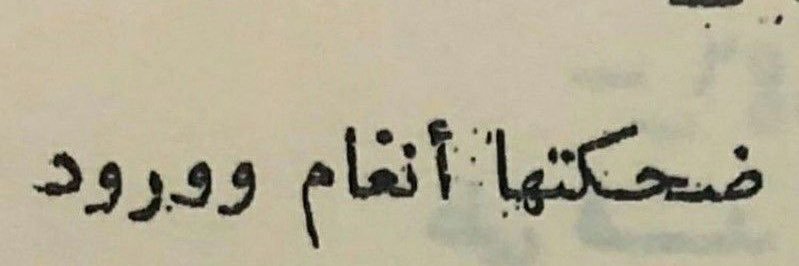 ضحكتها أنغام وورود